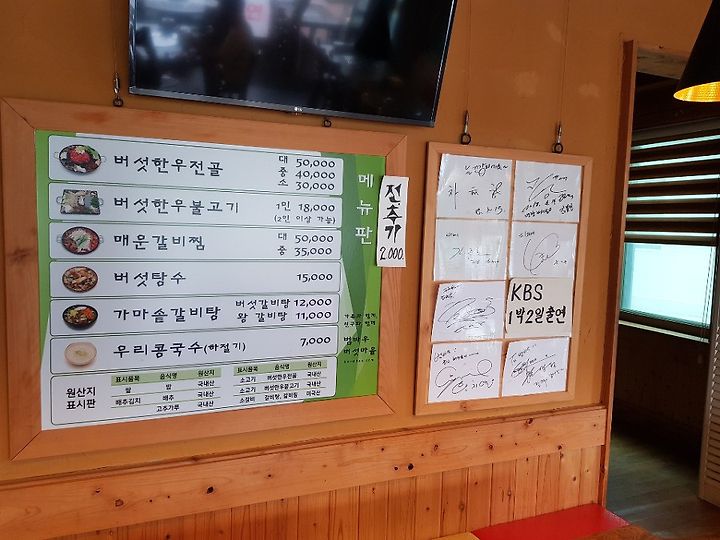 LG
버섯한우전골 대 50,000
중 40,000
소 30,000
버섯한우불고기 1인 18,000
(2인 이상 가능)
매운갈비찜 대 50,000
중 35,000
버섯탕수 15,000
가마솥갈비탕 버섯갈비탕 12,000
왕 갈비탕 11,000
우리콩국수(하절기) 7,000
메뉴판
버섯마을
원산지
표시판
표시품목 음식명 원산지 표시품목 음식명 원산지
쌀 밥 국내산 소고기 버섯한우전골 국내산
배추김치 배추 국내산 소고기 버섯한우불고기 국내산
고추가루 국내산 소갈비 갈비탕, 갈비찜 미국산
전추가
2,000.
KBS
1박2일출연